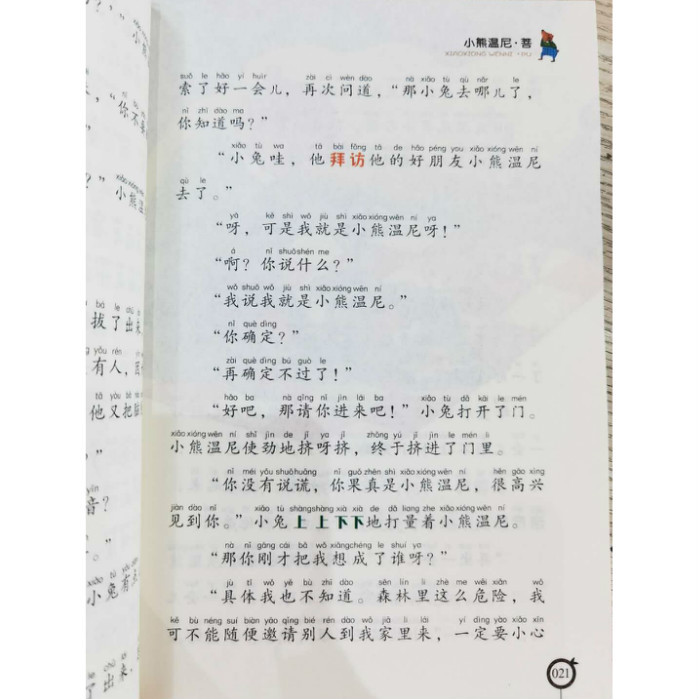 小熊温尼·菩
XIAOXIONG WENNI · PU
suǒ le hǎo yí huìr zài cì wèn dào nà xiǎo tù qù nǎr le
索了好一会儿，再次问道，“那小兔去哪儿了，
nǐ zhī dào ma
你知道吗？”
xiǎo tù wa tā bài fǎng tā de hǎo péng you xiǎo xióng wēn ní
“小兔哇，他拜访他的好朋友小熊温尼
qù le
去了。”
yā kě shì wǒ jiù shì xiǎo xióng wēn ní ya
“呀，可是我就是小熊温尼呀！”
á nǐ shuō shén me
“啊？你说什么？”
wǒ shuō wǒ jiù shì xiǎo xióng wēn ní
“我说我就是小熊温尼。”
nǐ què dìng
“你确定？”
zài què dìng bú guò le
“再确定不过了！”
hǎo ba nà qǐng nǐ jìn lái ba xiǎo tù dǎ kāi le mén
“好吧，那请你进来吧！”小兔打开了门。
xiǎo xióng wēn ní shǐ jìn de jǐ ya jǐ zhōng yú jǐ jìn le mén lǐ
小熊温尼使劲地挤呀挤，终于挤进了门里。
nǐ méi yǒu shuō huǎng nǐ guǒ zhēn shì xiǎo xióng wēn ní hěn gāo xìng
“你没有说谎，你果真是小熊温尼，很高兴
jiàn dào nǐ xiǎo tù shàng shàng xià xià de dǎ liang zhe xiǎo xióng wēn ní
见到你。”小兔上上下下地打量着小熊温尼。
nà nǐ gāng cái bǎ wǒ xiǎng chéng le shuí ya
“那你刚才把我想成了谁呀？”
jù tǐ wǒ yě bù zhī dào sēn lín lǐ zhè me wēi xiǎn wǒ
“具体我也不知道。森林里这么危险，我
kě bù néng suí biàn yāo qǐng bié rén dào wǒ jiā lǐ lái yí dìng yào xiǎo xīn
可不能随便邀请别人到我家里来，一定要小心
021